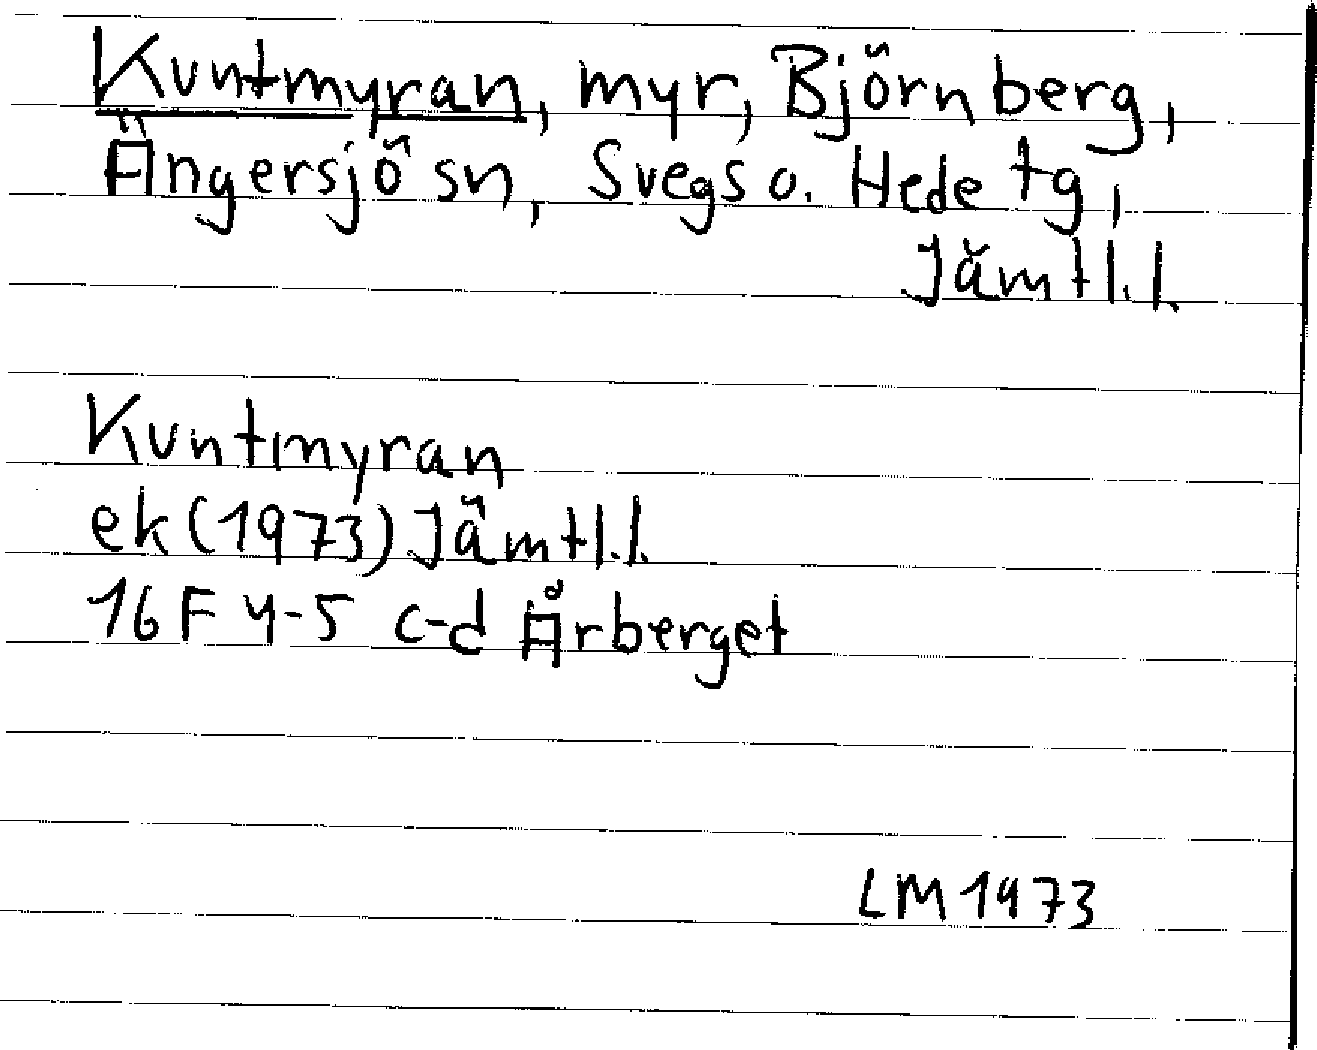 Kuntmyran, myr, Björnberg,
Ängersjö sn, Svegs o. Hede tg,
Jämtl.l.
Kuntmyran
ek (1973) Jämtl.l.
16 F 4-5 c-d Årberget
LM 1973